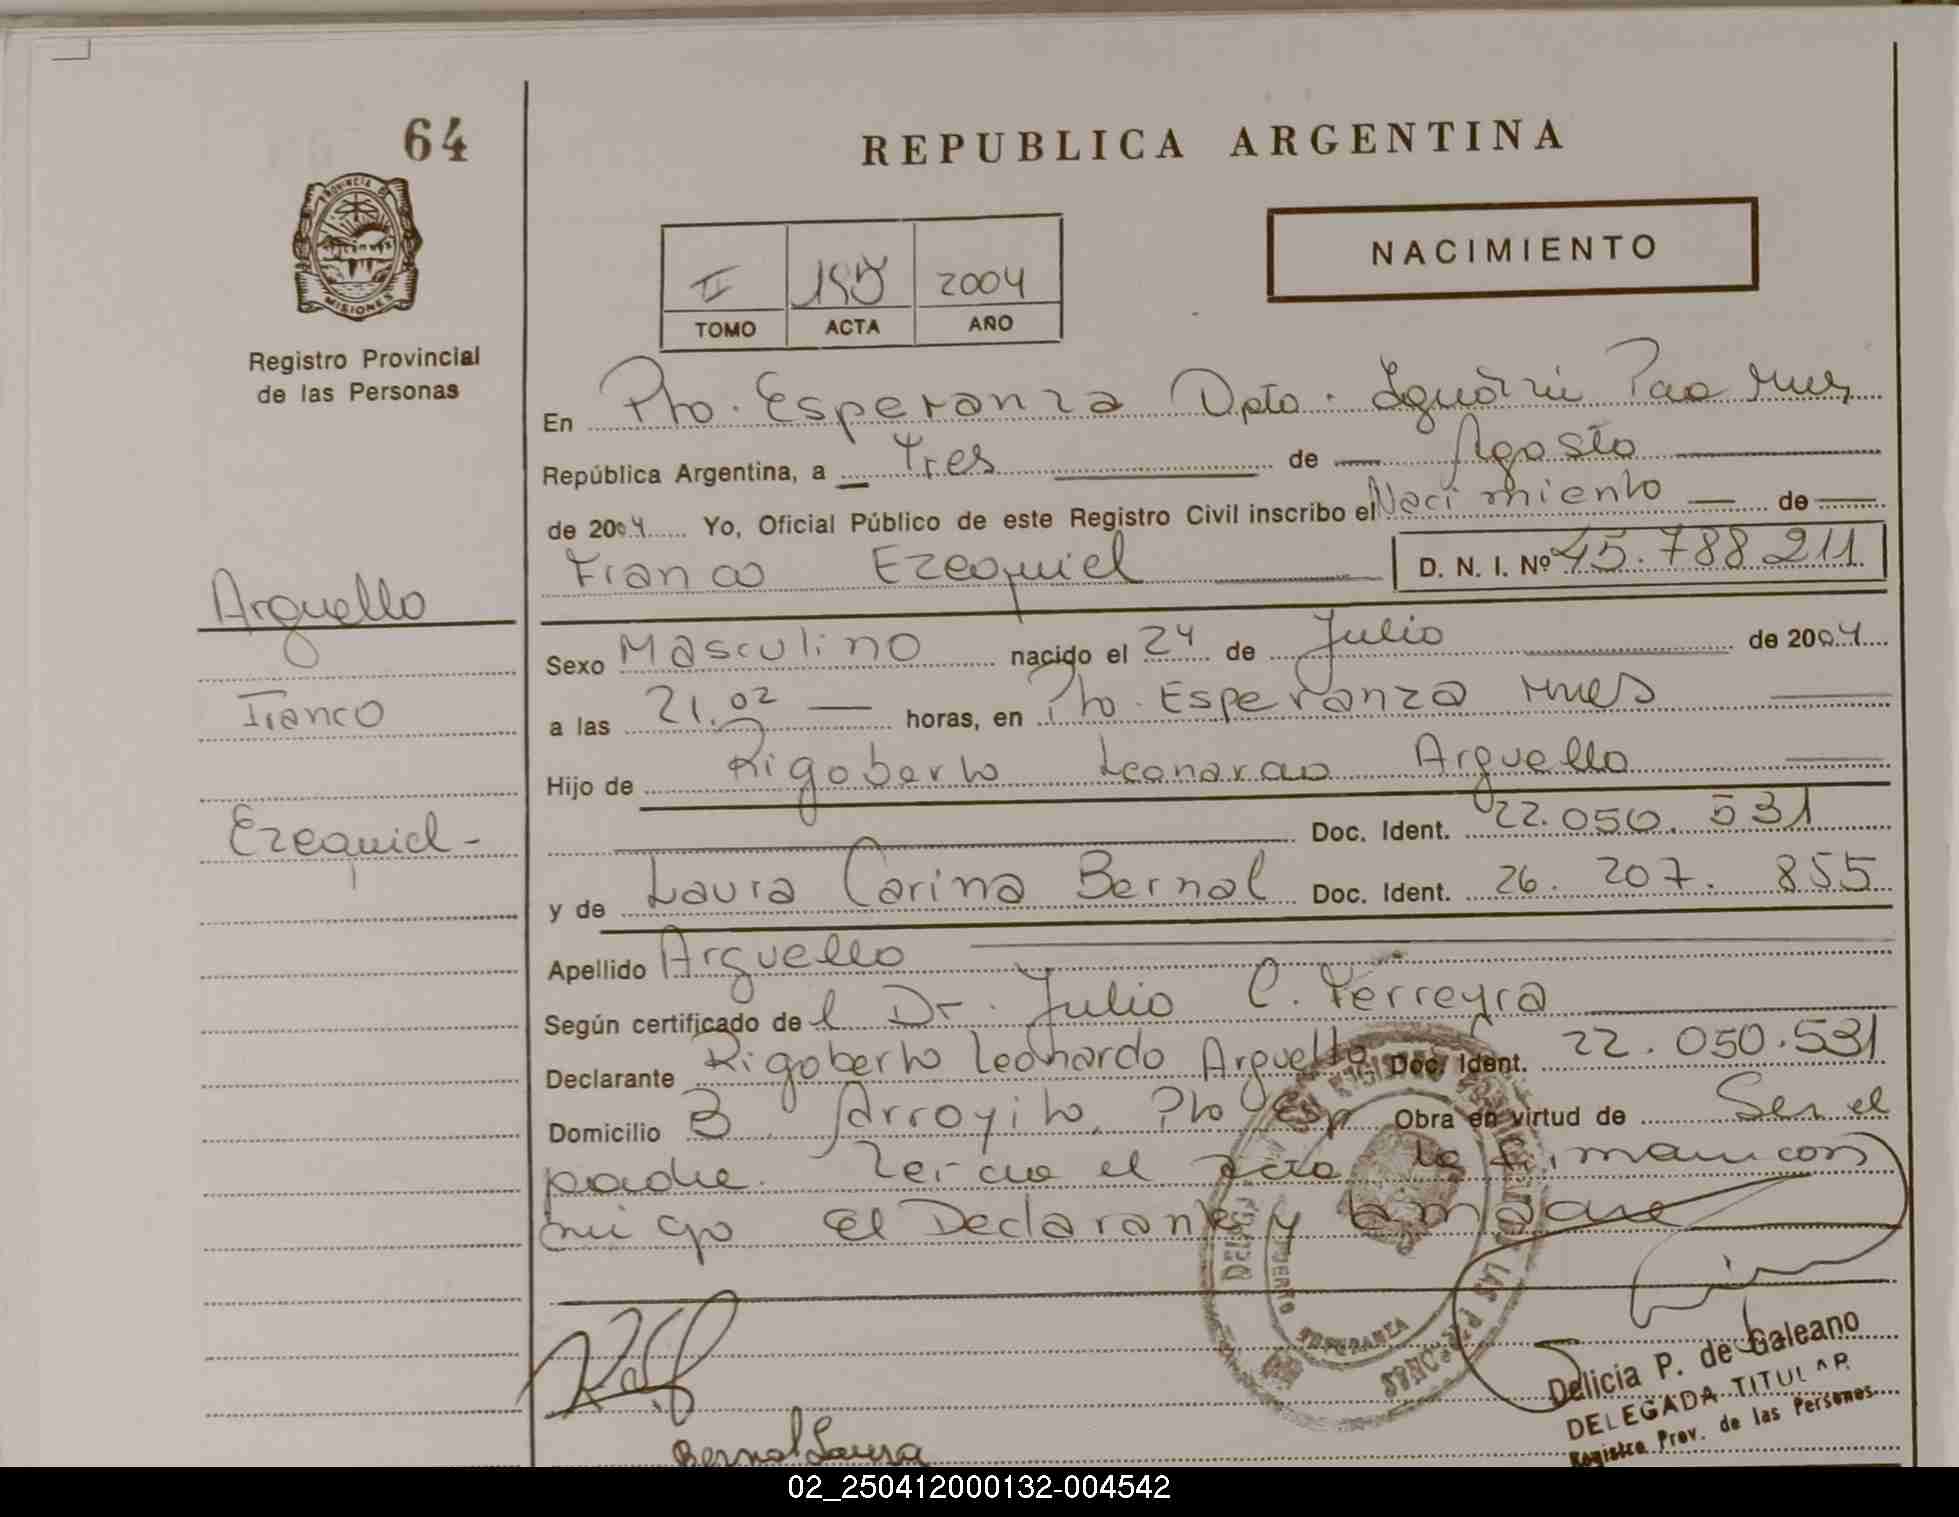 64
REPUBLICA ARGENTINA
PROVINCIA DE
MISIONES
NACIMIENTO
II 2004
TOMO ACTA AÑO
Registro Provincial
de las Personas
En Pto. Esperanza Dpto. Iguazú
República Argentina, a Tres de Agosto
de 2004 Yo, Oficial Público de este Registro Civil inscribo el Nacimiento de
Franco Ezequiel D. N. I. Nº 45.788.211
Arguello
Sexo Masculino nacido el 24 de Julio de 2004
Franco
a las 21.02 horas, en Pto. Esperanza Mnes
Hijo de Rigoberto Leonardo Arguello
Doc. Ident. 22.050.531
Ezequiel -
y de Laura Carina Bernal Doc. Ident. 26.207.855
Apellido Arguello
Según certificado del Dr. Julio C. Ferreyra
Declarante Rigoberto Leonardo Arguello Doc. Ident. 22.050.531
Domicilio B. Arroyito, Pto Esp Obra en virtud de Ser el
padre. el acta la firman con
migo El Declarante y la madre
DELEG LAS PERSONAS
PUERTO ESPERANZA
Bernal Laura
Delicia P. de Galeano
DELEGADA TITULAR
Registro Prov. de las Personas
02_250412000132-004542